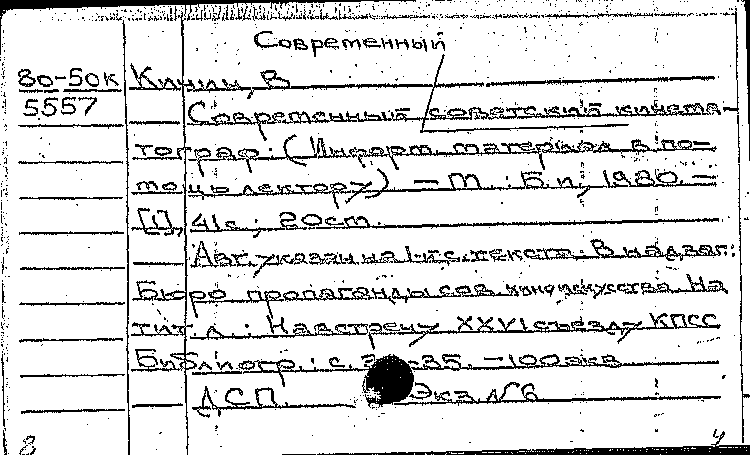 Современный
80-50к
5557
В
Современный советский кинема-
тограф: (Информ. материал в по-
мощь лектору) – М.: Б.и., 1980. –
[1], 41 с.; 20 см.
Авт. указан на 1-й с. текста. В надзаг.:
Бюро пропаганды сов. киноискусства. На
тит. л.: Навстречу XXVI съезду КПСС
Библиогр.: с. -35. – 100 экз
ДСП. Экз. №6
8 4